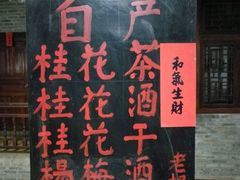 自产
桂花茶
桂花酒
桂花干
杨梅酒
和氣生財
老